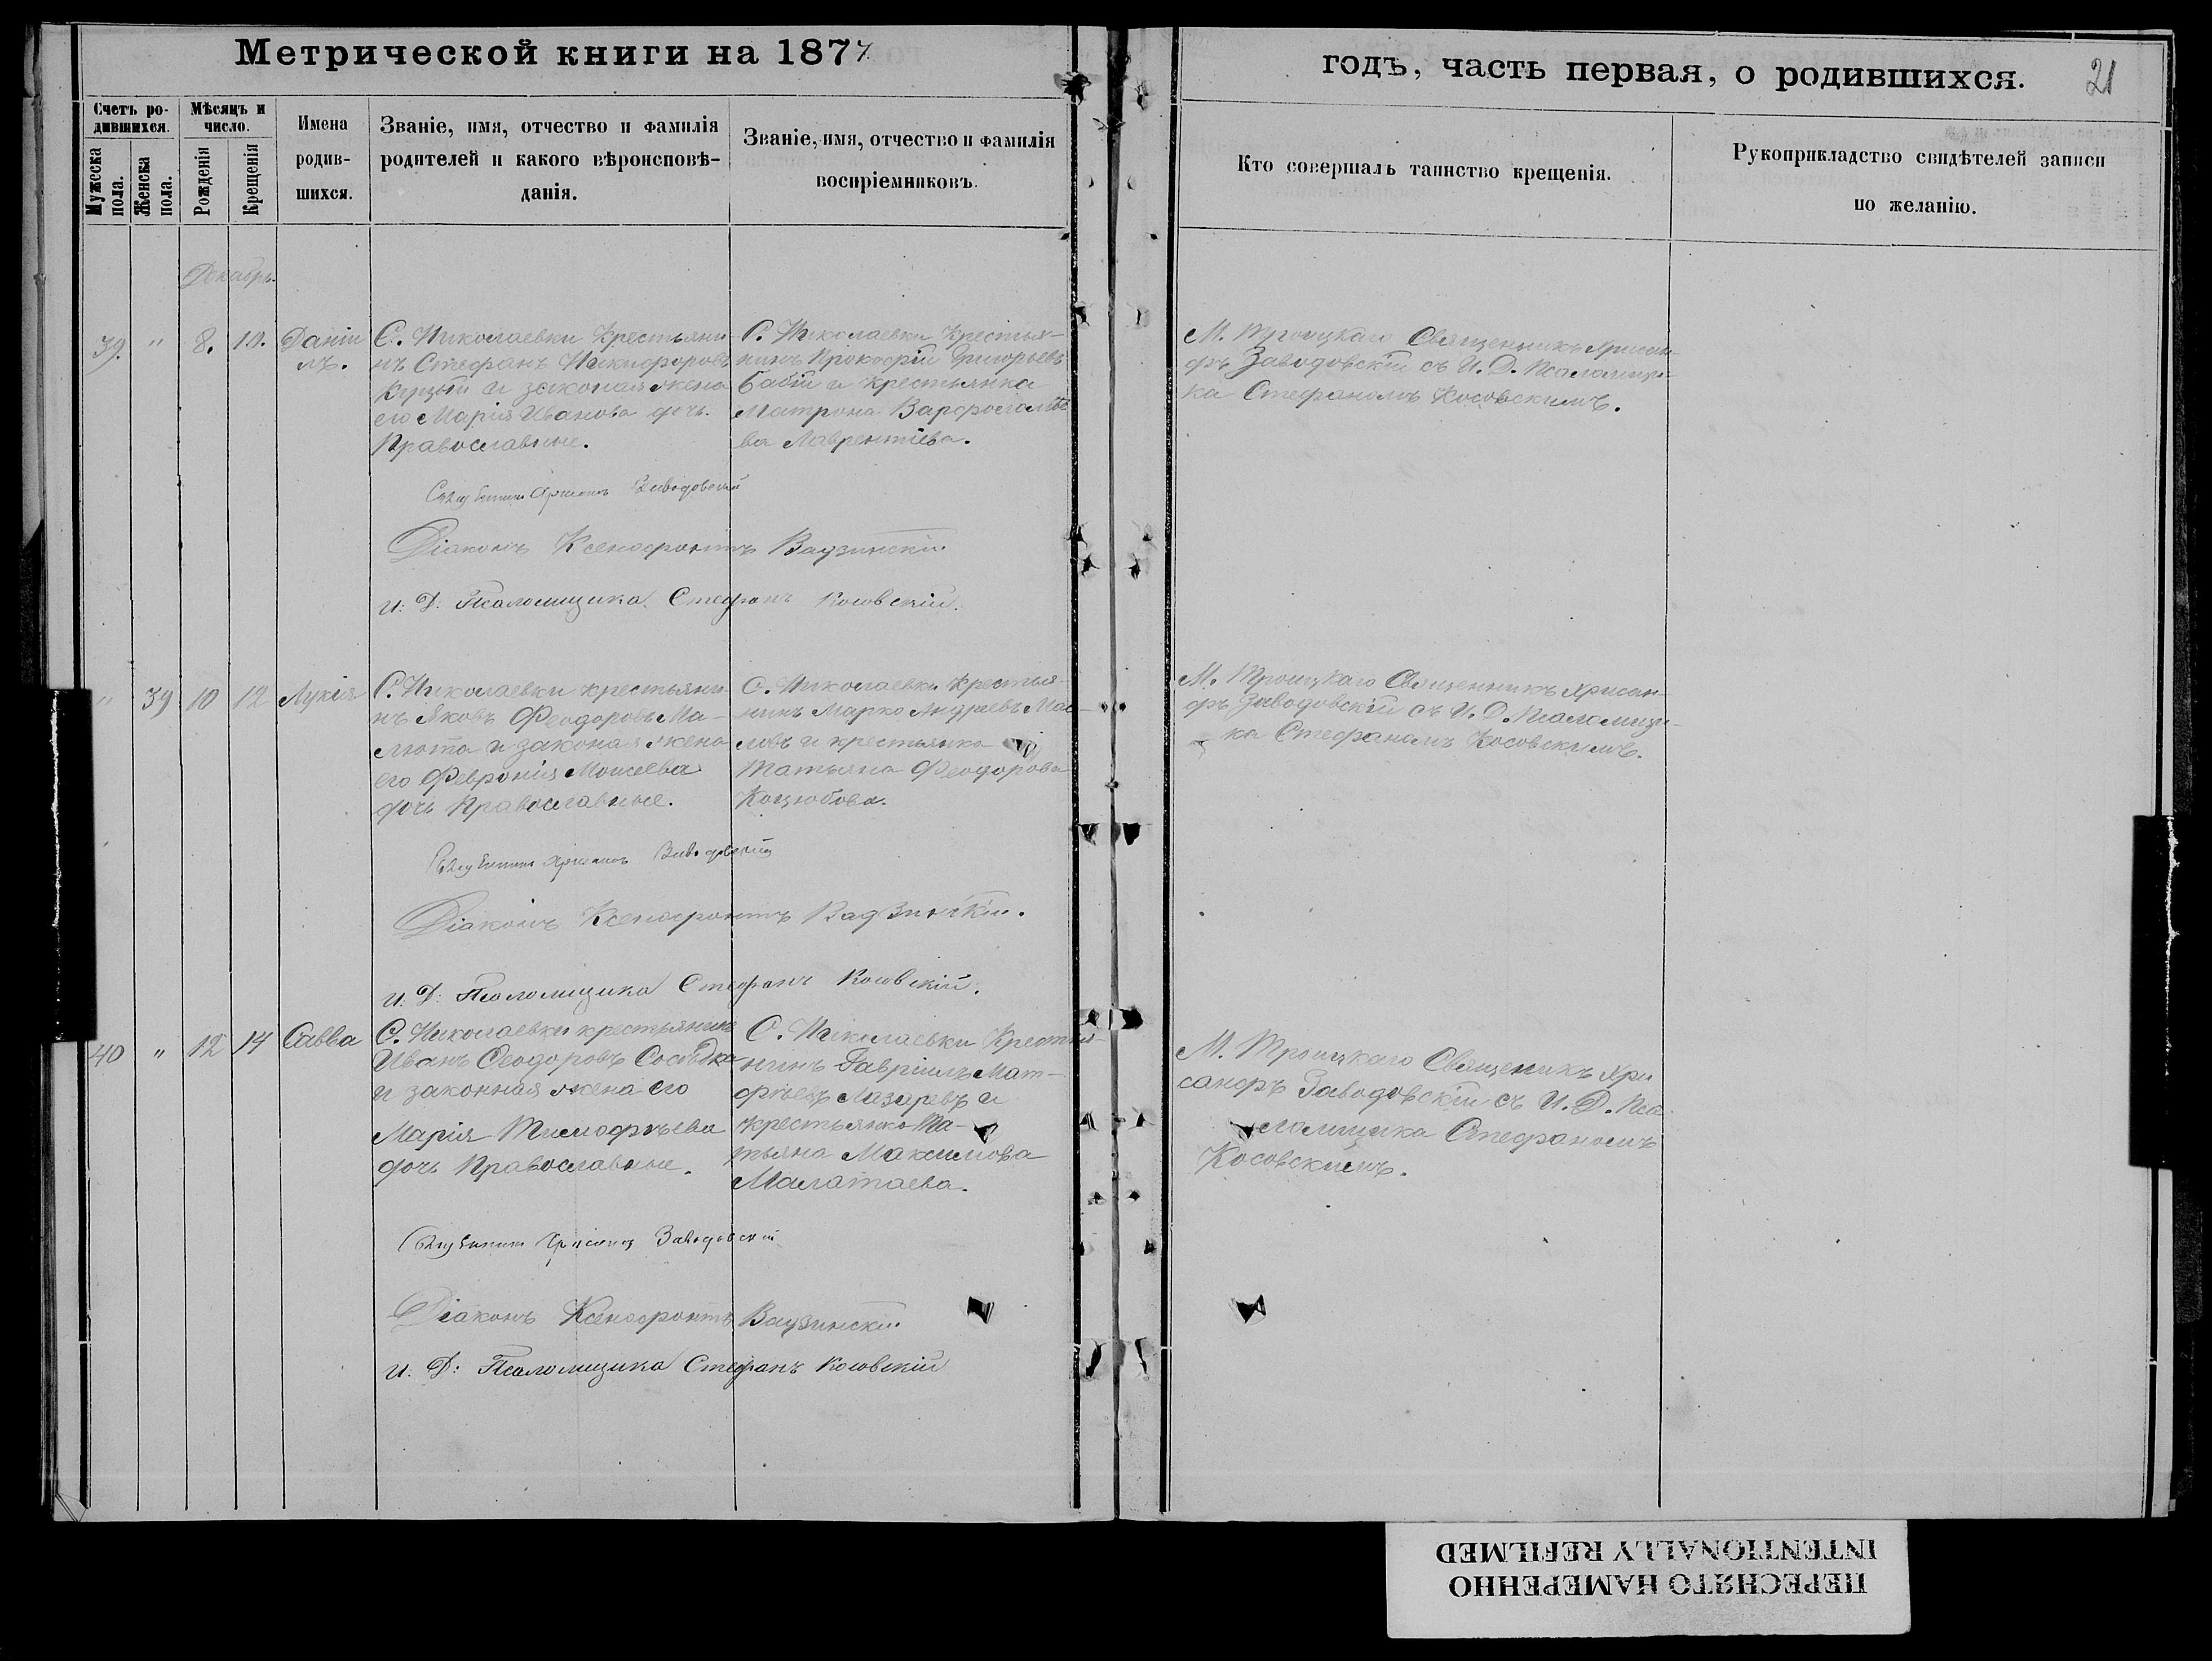 Метрической книги на 1877
годъ, часть первая, о родившихся.
21
Счетъ ро-
дившихся.
Мужеска пола.
Женска пола.
Мѣсяцъ и
число.
Рожденія
Крещенія
Имена
родив-
шихся.
Званіе, имя, отчество и фамилія
родителей и какого вѣроисповѣ-
данія.
Званіе, имя, отчество и фамилія
воспріемниковъ.
Кто совершалъ таинство крещенія.
Рукоприкладство свидѣтелей записи
по желанію.
Декабрь.
39. " 8. 10.
Даніи
лъ.
С. Николаевки Крестьяни
нъ Стефанъ Никифоровъ
и законая жена
его Марія Иванова дочь.
Православные.
С. Николаевки Крестья-
нинъ Прокофій Григорьевъ
Бабій и крестьянка
Матрона Варфоломѣе
ва Лаврентіева.
М. Троицкаго Священникъ Хрисан-
фъ Заводовскій съ И. Д. Псаломщи-
ка Стефаномъ Косовскимъ.
Священникъ Хрисанфъ Заводовскій
Діаконъ Ксенофонтъ Вадзинскій.
И: Д: Псаломщика Стефанъ Косовскій.
" 39 10 12 Лукія
С. Николаевки крестьяни
нъ Яковъ Феодоровъ Ма-
люта и законая жена
его Февронія Моисеева
дочь Православные.
С. Николаевки Крестья-
нинъ Марко Андреевъ Мас
ловъ и крестьянка
Татьяна Феодорова
Коцюбова.
М. Троицкаго Священникъ Хрисан-
фъ Заводовскій съ И. Д. Псаломщи-
ка Стефаномъ Косовскимъ.
Священникъ Хрисанфъ Заводовскій
Діаконъ Ксенофонтъ Вадзинскій.
И: Д: Псаломщика Стефанъ Косовскій.
40 " 12 14 Савва
С. Николаевки крестьянинъ
Иванъ Феодоровъ Сосѣдка
и законная жена его
Марія Тимофѣева
дочь Православные.
С. Николаевки Крестья-
нинъ Гавріилъ Мат-
фѣевъ Лазаревъ и
крестьянка Та-
тьяна Максимова
Малатаева.
М. Троицкаго Священикъ Хри
санфъ Заводовскій съ И. Д. Пса
ломщика Стефаномъ
Косовскимъ.
Священникъ Хрисанфъ Заводовскій
Діаконъ Ксенофонтъ Вадзинскій
И. Д: Псаломщика Стефанъ Косовскій
ПЕРЕСНЯТО НАМЕРЕННО
INTENTIONALLY REFILMED